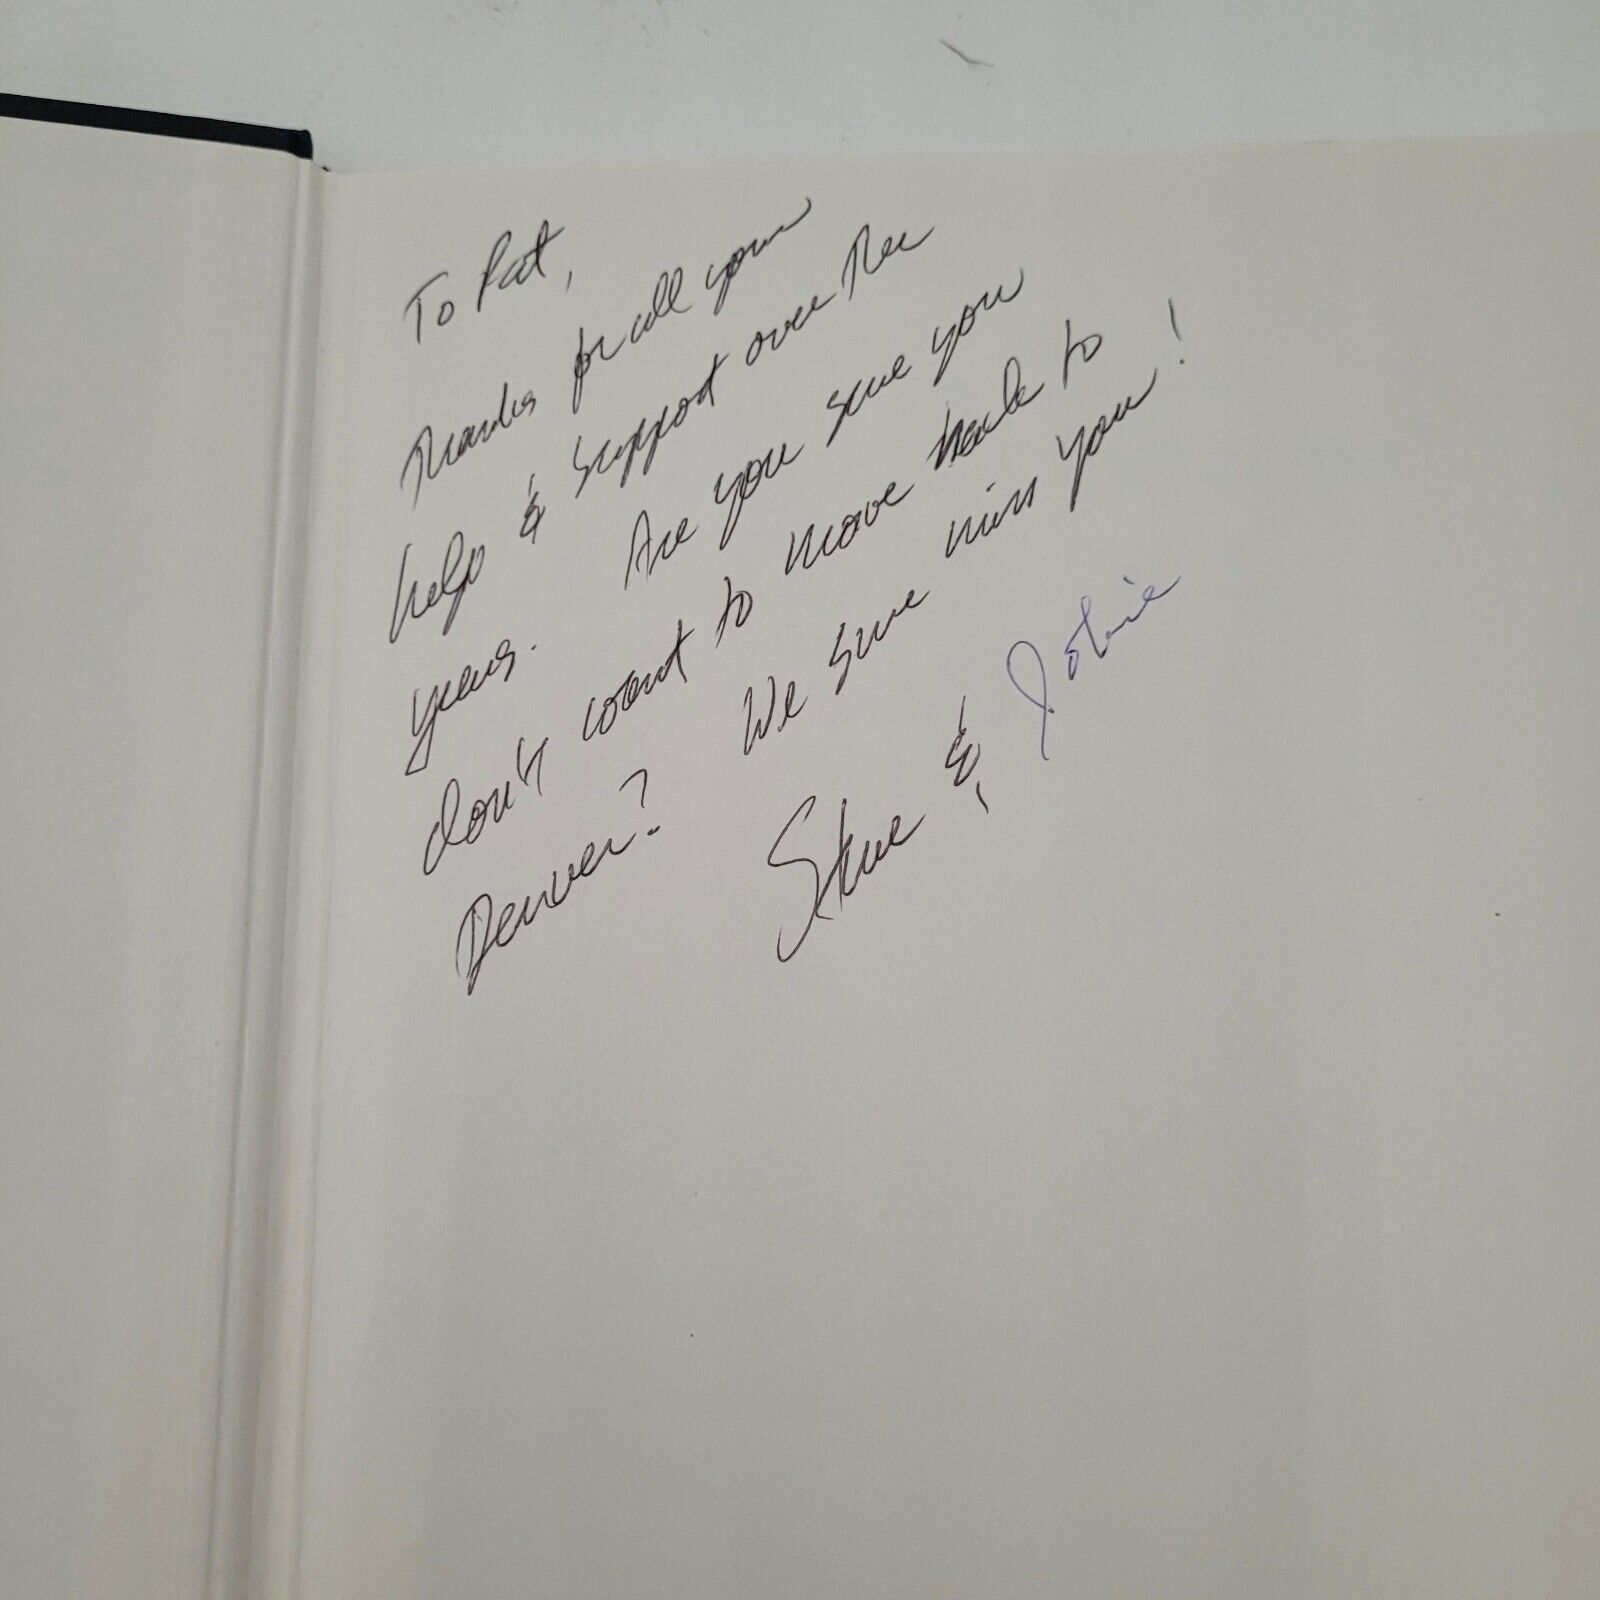 To Pat,
Thanks for all your
help & support over the
years. Are you sure you
don't want to move back to
Denver? We sure miss you!
Steve &